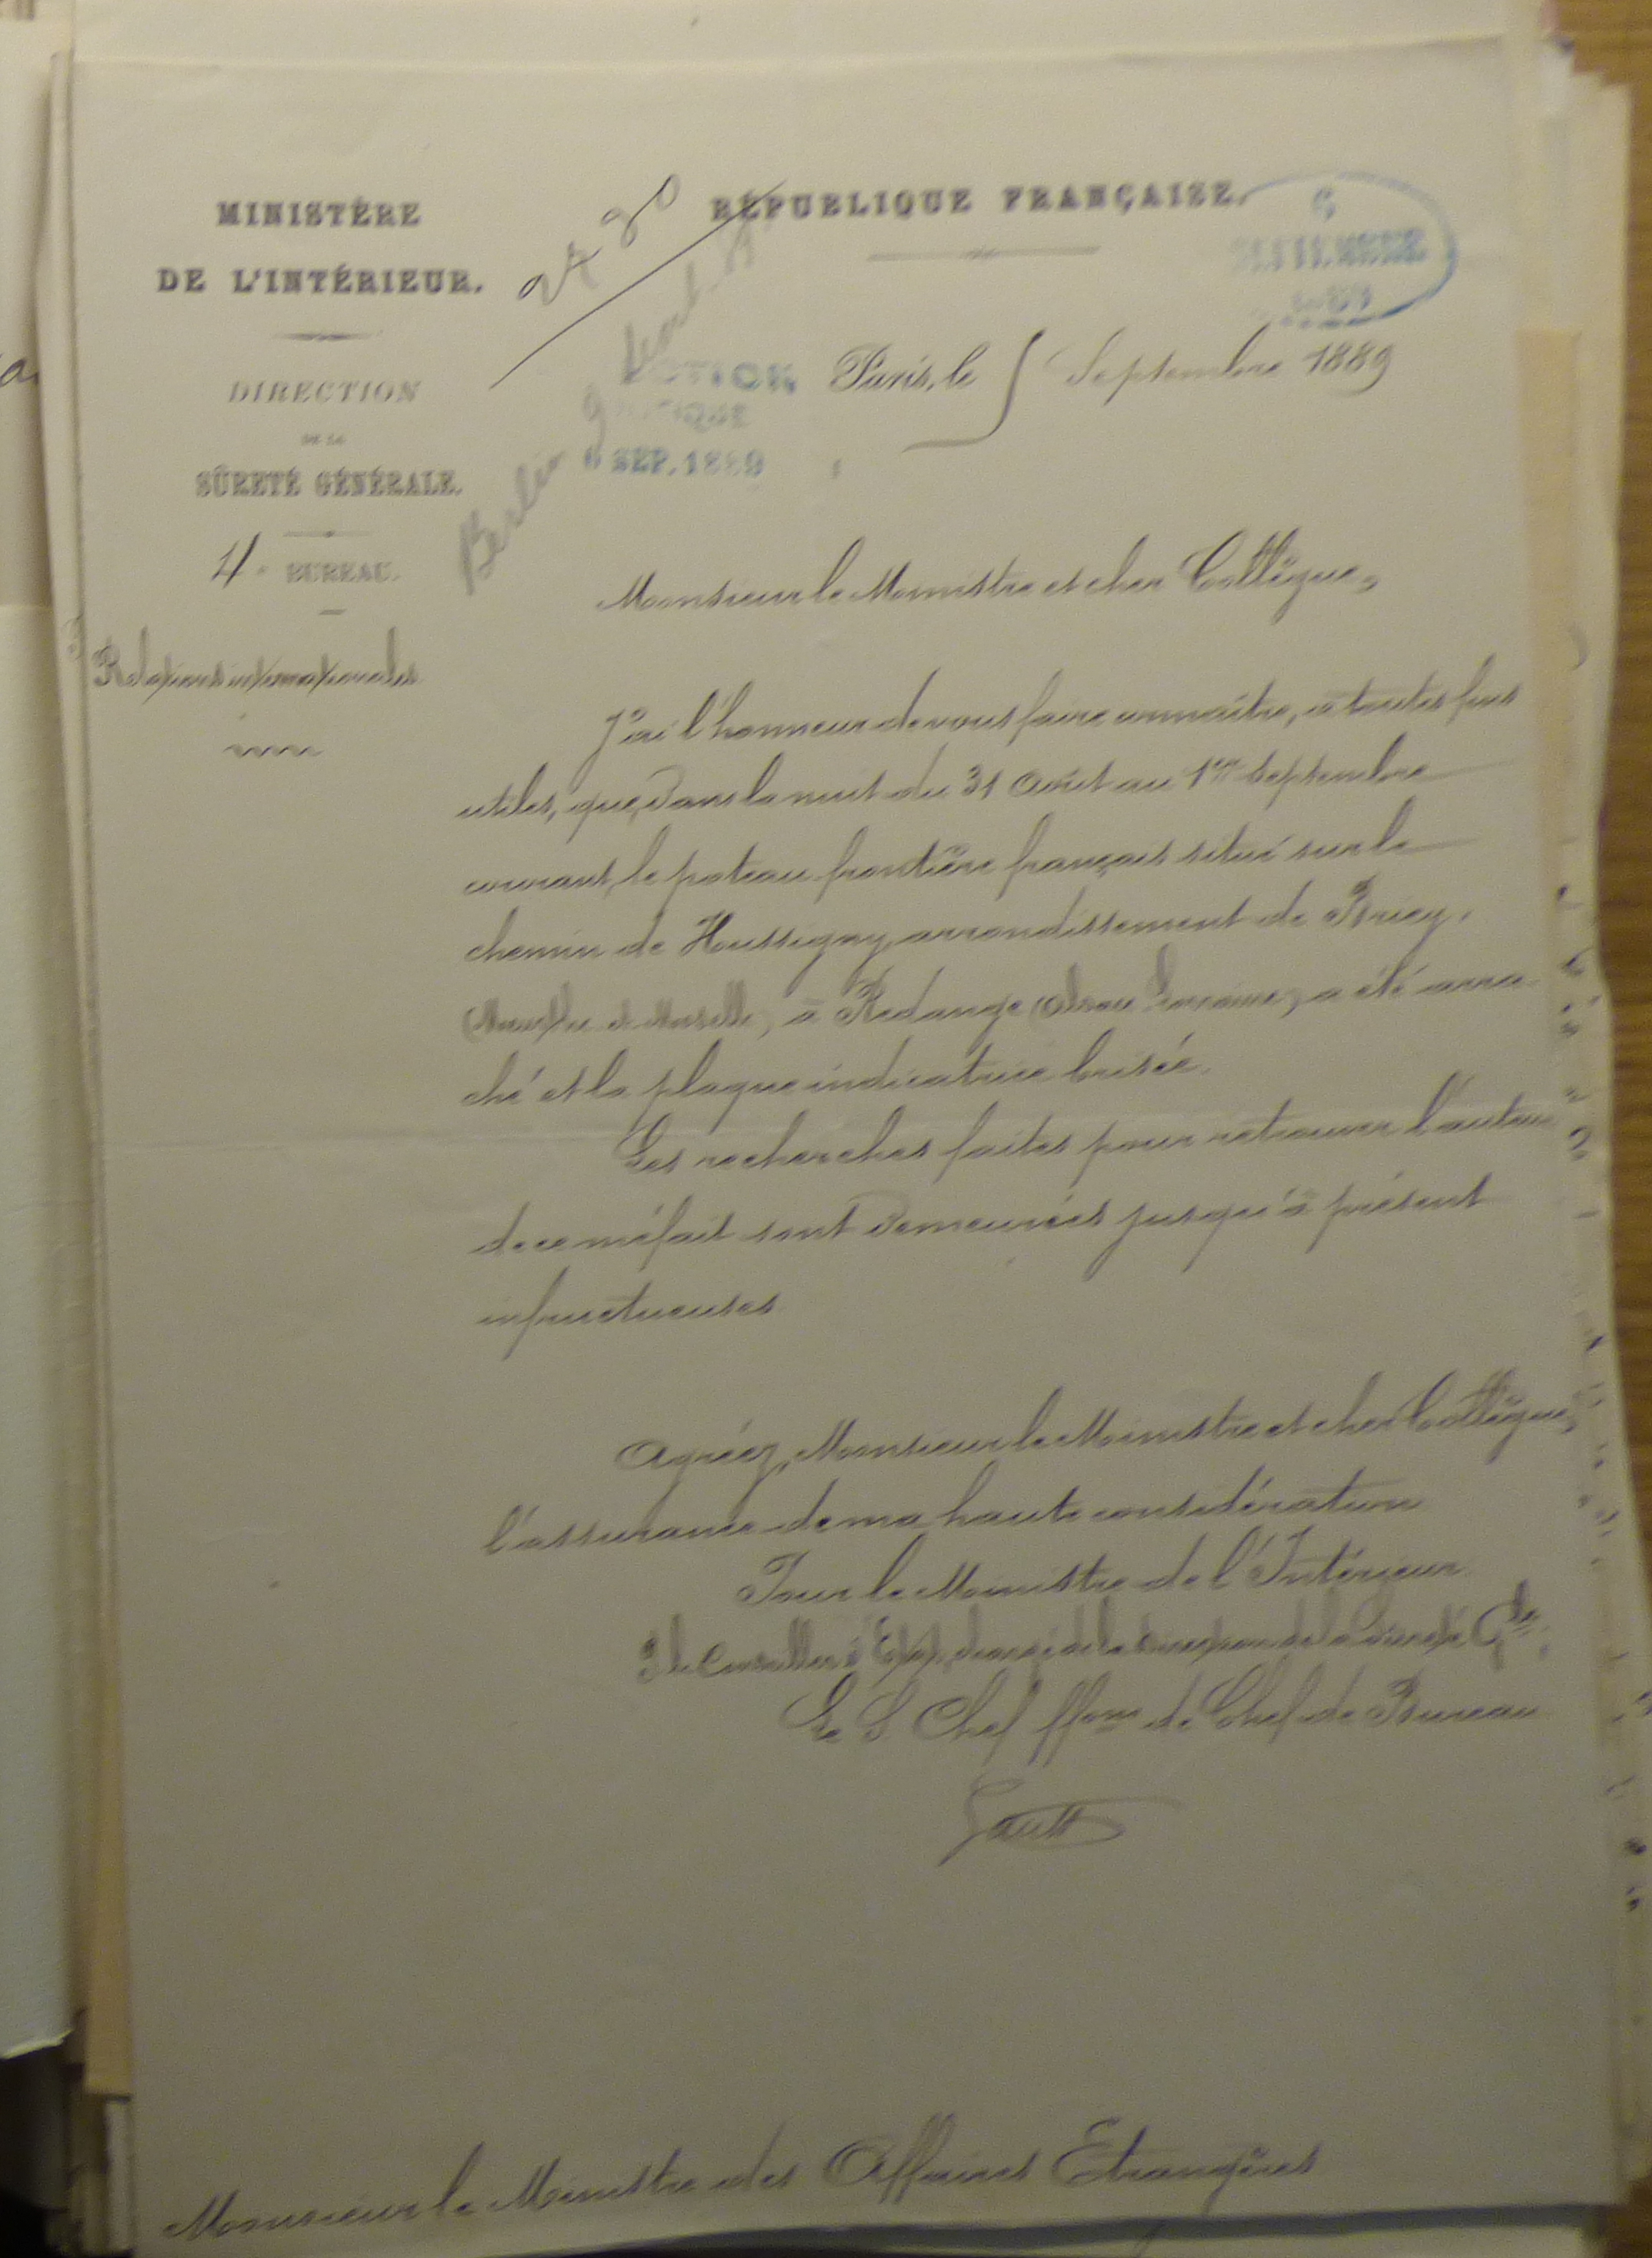 MINISTÈRE
DE L'INTÉRIEUR.
DIRECTION
DE LA
SÛRETÉ GÉNÉRALE.
4e BUREAU.
Relations internationales
RÉPUBLIQUE FRANÇAISE.
6 SEP. 1889
Berlin
Paris, le 5 Septembre 1889
Monsieur le Ministre et cher Collègue,
J'ai l'honneur de vous faire connaître, à toutes fins
utiles, que, dans la nuit du 31 Août au 1er Septembre
courant, le poteau frontière français situé sur le
chemin de Houssigny, arrondissement de Briey,
(Meurthe et Moselle), à Redange (Alsace Lorraine), a été arra-
ché et la plaque indicatrice brisée.
Les recherches faites pour retrouver l'auteur
de ce méfait sont demeurées jusqu'à présent
infructueuses.
Agréez, Monsieur le Ministre et cher Collègue,
l'assurance de ma haute considération
Pour le Ministre de l'Intérieur
P. le Conseiller d'Etat, chargé de la direction de la Sûreté Gle
Le S Chef ffons de Chef de Bureau
Monsieur le Ministre des Affaires Etrangères